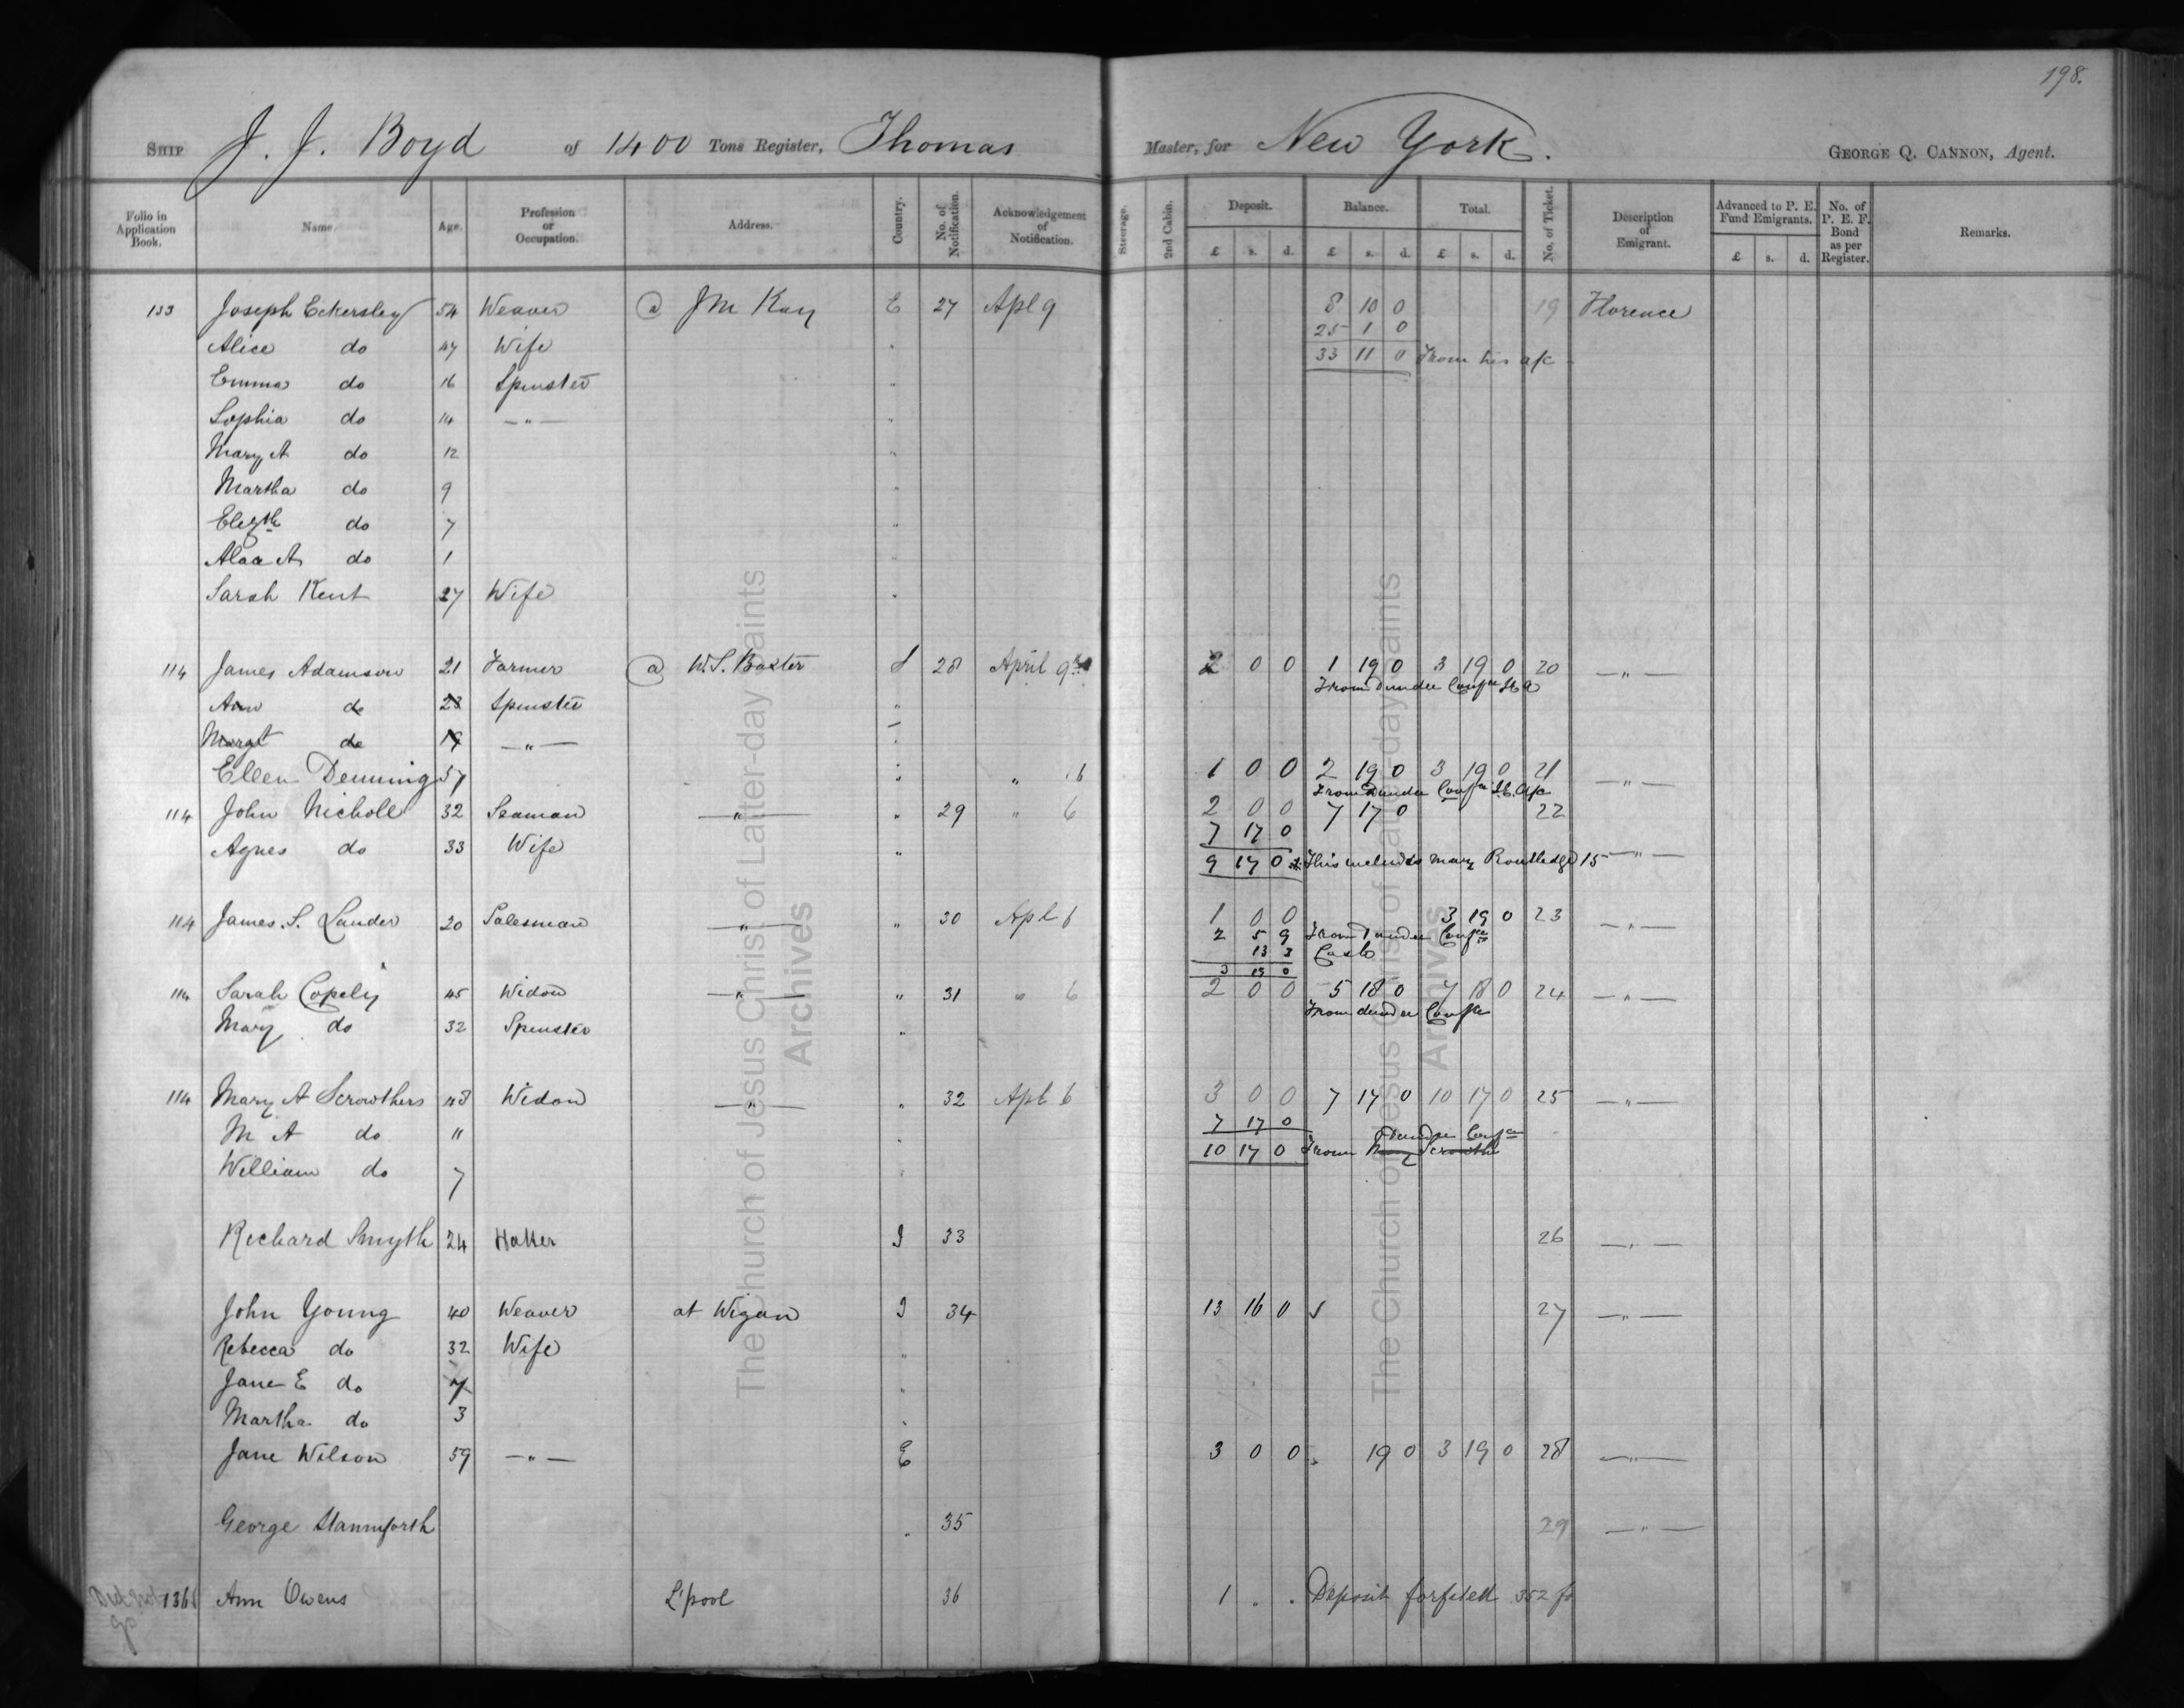 198.
SHIP J. J. Boyd of 1400 Tons Register, Thomas Master, for New York. GEORGE Q. CANNON, Agent.
Folio in Application Book. Name. Age. Profession or Occupation. Address. Country. No. of Notification. Acknowledgement of Notification. Steerage. 2nd Cabin. Deposit. Balance. Total. No. of Ticket. Description of Emigrant. Advanced to P. E. Fund Emigrants. No. of P. E. F. Bond as per Register. Remarks.
£ s. d. £ s. d. £ s. d. £ s. d.
133 Joseph Eckersley 54 Weaver @ J M Kay E 27 Apl 9 8 10 0 19 Florence
25 1 0
Alice do 47 Wife " 33 11 0 From his a/c
Emma do 16 Spinster "
Sophia do 14 — " — "
Mary A do 12 "
Martha do 9 "
Elizth do 7 "
do 1
Sarah Kent 27 Wife "
114 James Adamson 21 Farmer @ W. S. Baxter S 28 April 9th 2 0 0 1 19 0 3 19 0 20 — " —
From Dundee Confce
Ann do 23 Spinster "
Margt do 19 — " — "
Ellen Denning 57 " " 16 1 0 0 2 19 0 3 19 0 21 — " —
From Dundee Confce a/c
114 John Nicholl 32 Seaman — " — " 29 " 6 2 0 0 7 17 0 22
7 17 0
Agnes do 33 Wife " 9 17 0 * This includes Mary Routledge 15 — " —
114 James. S. Lauder 20 Salesman — " — " 30 Apl 6 1 0 0 3 19 0 23 — " —
2 5 9 From Dundee Confce
13 3 Cash
3 19 0
114 Sarah Copely 45 Widow — " — " 31 " 6 2 0 0 5 18 0 7 18 0 24 — " —
From dundee Confce
Mary do 32 Spinster "
114 Mary A Scrowthers 43 Widow — " — " 32 Apl 6 3 0 0 7 17 0 10 17 0 25 — " —
7 17 0
M A do 11 " Dundee Confce
10 17 0 From Mary Scrowthe
William do 7 "
Richard Smyth 24 Hatter I 33 26 — " —
John Young 40 Weaver at Wigan I 34 13 16 0 27 — " —
Rebecca do 32 Wife "
Jane E do 7 "
Martha do 3 "
Jane Wilson 59 — " — E 3 0 0 " 19 0 3 19 0 28 — " —
George Stanniforth " 35 29 — " —
Did not go 136 Ann Owens L'pool 36 1 . . Deposit forfeited 352 fo
The Church of Jesus Christ of Latter-day Saints
Archives
The Church of Jesus Christ of Latter-day Saints
Archives